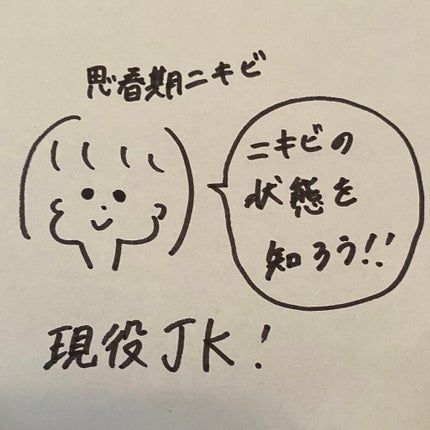 思春期ニキビ
ニキビの
状態を
知ろう!!
現役JK!